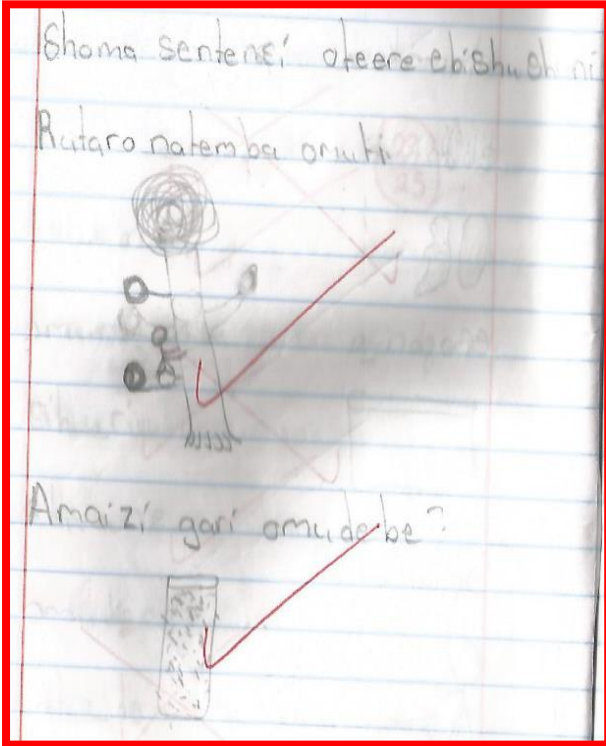 Shoma sentensi oteere ebishushani
Rutaro natemba omuti.
Amaizi gari omudebe?